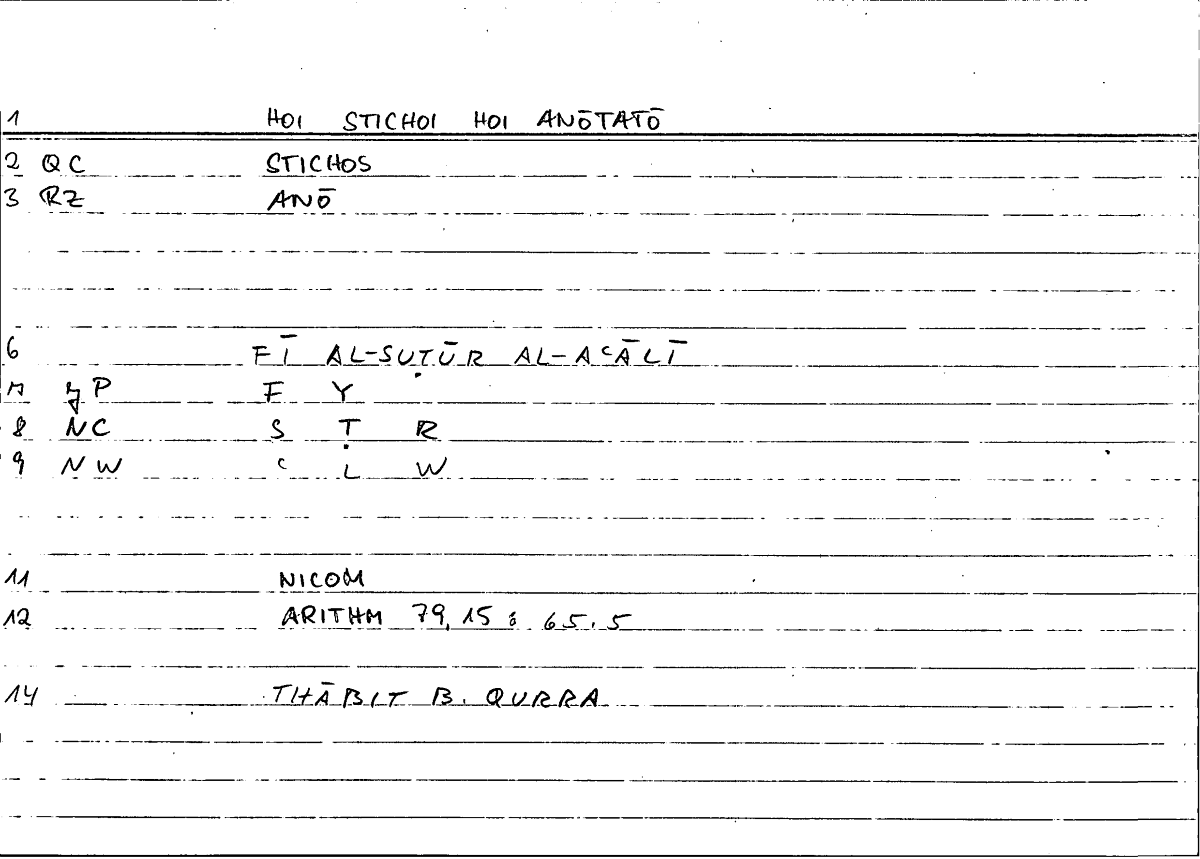 1 HOI STICHOI HOI ANŌTATŌ
2 QC STICHOS
3 RZ ANŌ
6 FĪ AL-SUṬŪR AL-AʿĀLĪ
7 P F Y
8 NC S Ṭ R
9 NW ʿ L W
11 NICOM
12 ARITHM 79, 15 : 65.5
14 THĀBIT B. QURRA